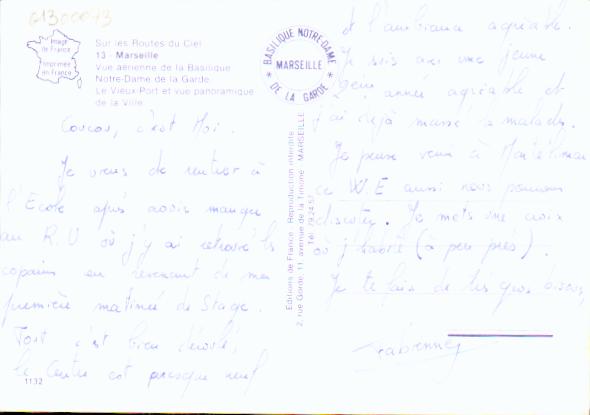 61300073
Image
de France
Imprimée
en France
Sur les Routes du Ciel
13 - Marseille
Vue aérienne de la Basilique
Notre-Dame de la Garde.
Le Vieux-Port et vue panoramique
de la Ville.
BASILIQUE NOTRE-DAME
MARSEILLE
* DE LA GARDE *
Coucou, c'est Moi.
Je viens de rentrer à
l'Ecole après avoir mangé
au R.U où j'y ai retrouvé les
copains en revenant de ma
première matinée de Stage.
Tout c'est bien déroulé,
le Centre est presque neuf
1132
Editions de France - Reproduction interdite
2, rue Gorde, 11, avenue de la Timone - MARSEILLE
Tél. 79.24.57
et l'ambiance agréable.
Je suis avec une jeune
année agréable et
j'ai déjà massé malades.
Je pense venir à Montélimar
ce W.E aussi nous pourrons
discuter. Je mets une croix
où j'habite (à peu près).
Je te fais de très gros bisous,
Fabienne